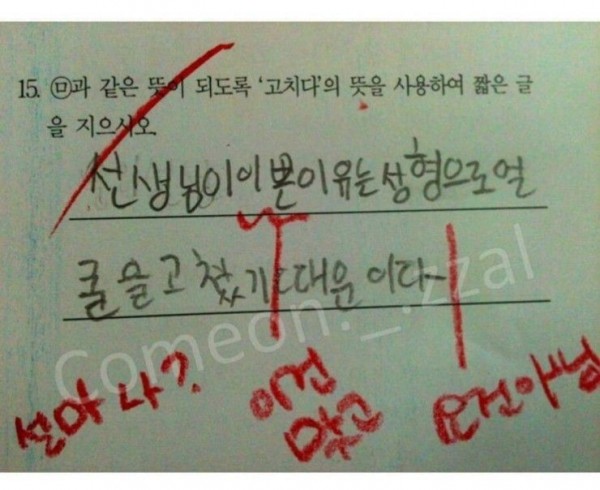 15. ㉤과 같은 뜻이 되도록 '고치다'의 뜻을 사용하여 짧은 글
을 지으시오.
선생님이 이쁜이유는 성형으로 얼
굴을 고쳤기 때문이다
Comeon._.zzal
설마 나?
이건 맞고
요건 아님